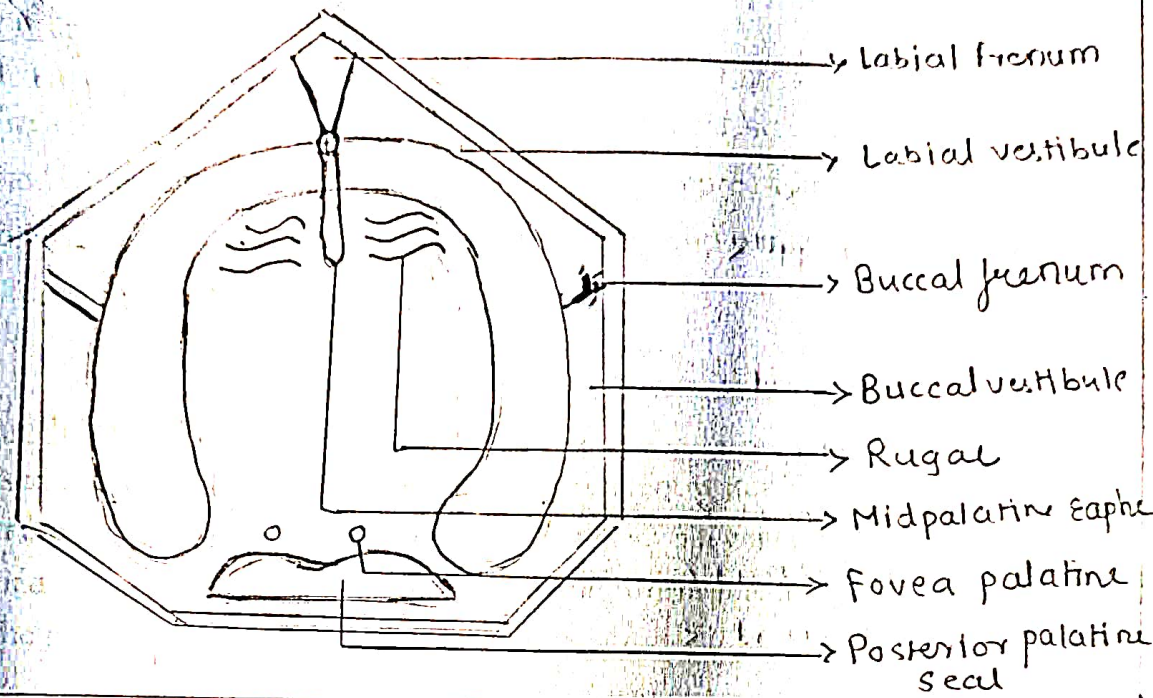 Labial frenum
Labial vestibule
Buccal frenum
Buccal vestibule
Rugae
Midpalatine raphe
Fovea palatine
Posterior palatine
seal